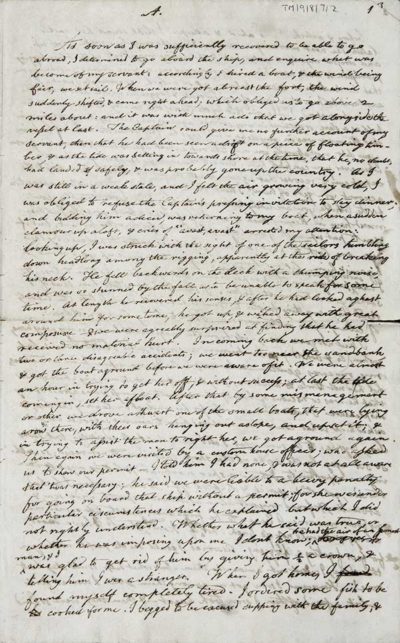 A.
TM/9/8/7/2
1
As soon as I was sufficiently recovered to be able to go
abroad, I determined to go aboard the ship, and enquire what was
become of my servant: accordingly I hired a boat, & the wind being
fair, we set sail. When we were got abreast the fort, the wind
suddenly shifted, & came right ahead, which obliged us to go above 2
miles about: and it was with much ado that we got alongside the
vessel at last. The Captain could give me no further account of my
servant, than that he had been seen adrift on a piece of floating timber
& as the tide was setting in towards shore at the time, that he, no doubt,
had land'd in safety, & was probably gone up the country. As I
was still in a weak state, and I felt the air growing very cold, I
was obliged to refuse the Captain's pressing invitation to stay dinner,
and bidding him adieu, was returning to my boat, when a sudden
clamour aloft, & cries of "avast, avast" arrested my attention.
Looking up, I was struck with the sight of one of the sailors tumbling
down headlong among the rigging, apparently at the risk of breaking
his neck. He fell backwards on the deck with a thumping noise
and was so stunned by the fall as to be unable to speak for some
time. At length he recovered his senses, & after he had looked aghast
around him for some time, he got up, & walked away with great
composure & we were agreeably surprised at finding that he had
received no material hurt. In coming back we met with
two or three disagreeable accidents; we went too near the sandbank
& got the boat aground before we were aware of it. We were almost
an hour in trying to get her off, & without success; at last the tide
coming in, set her afloat. After that by some mismanagement
or other we drove athwart one of the small boats, that were lying
there, with their oars hanging out aslope, and upset it; &
in trying to assist the man to right her, we got aground again.
Then again we were visited by a custom house officer; who asked
us to show our permit. I told him I had none, & was not at all aware
that it was necessary; he said we were liable to a heavy penalty
for going on board that ship without a permit, for she was under
particular circumstances which he explained but which I did
not rightly understand. Whether what he said was true, or
whether he was imposing upon me I don't know;
& I
was glad to get rid of him by giving him ½ a crown, &
telling him I was a stranger. When I got home, I
found myself completely tired. I ordered some fish to be
cooked for me. I begged to be excused supping with the family, &